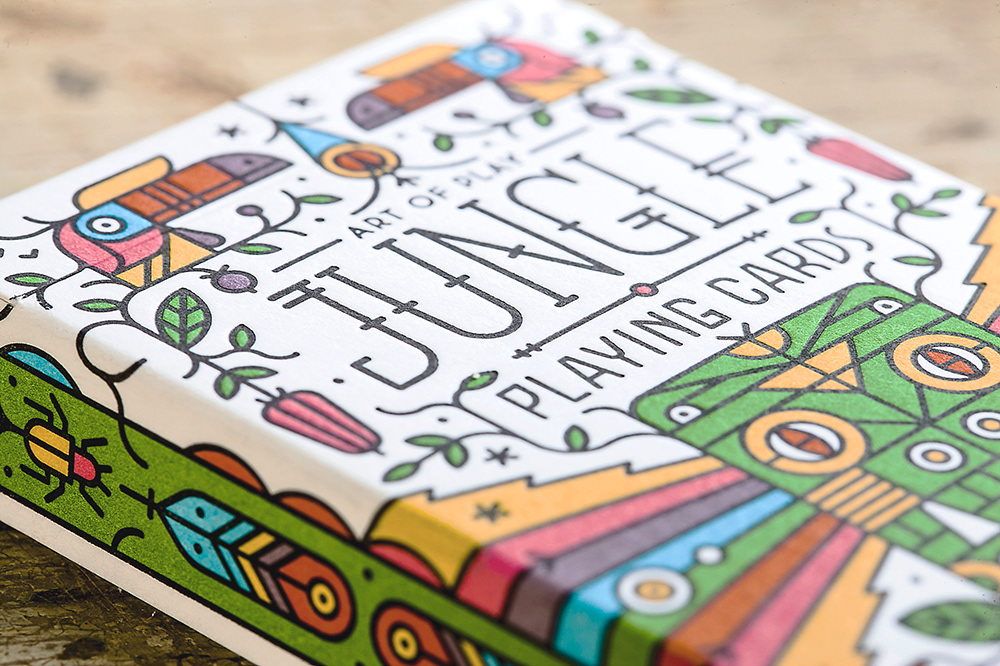 ART OF PLAY
JUNGLE
PLAYING CARDS